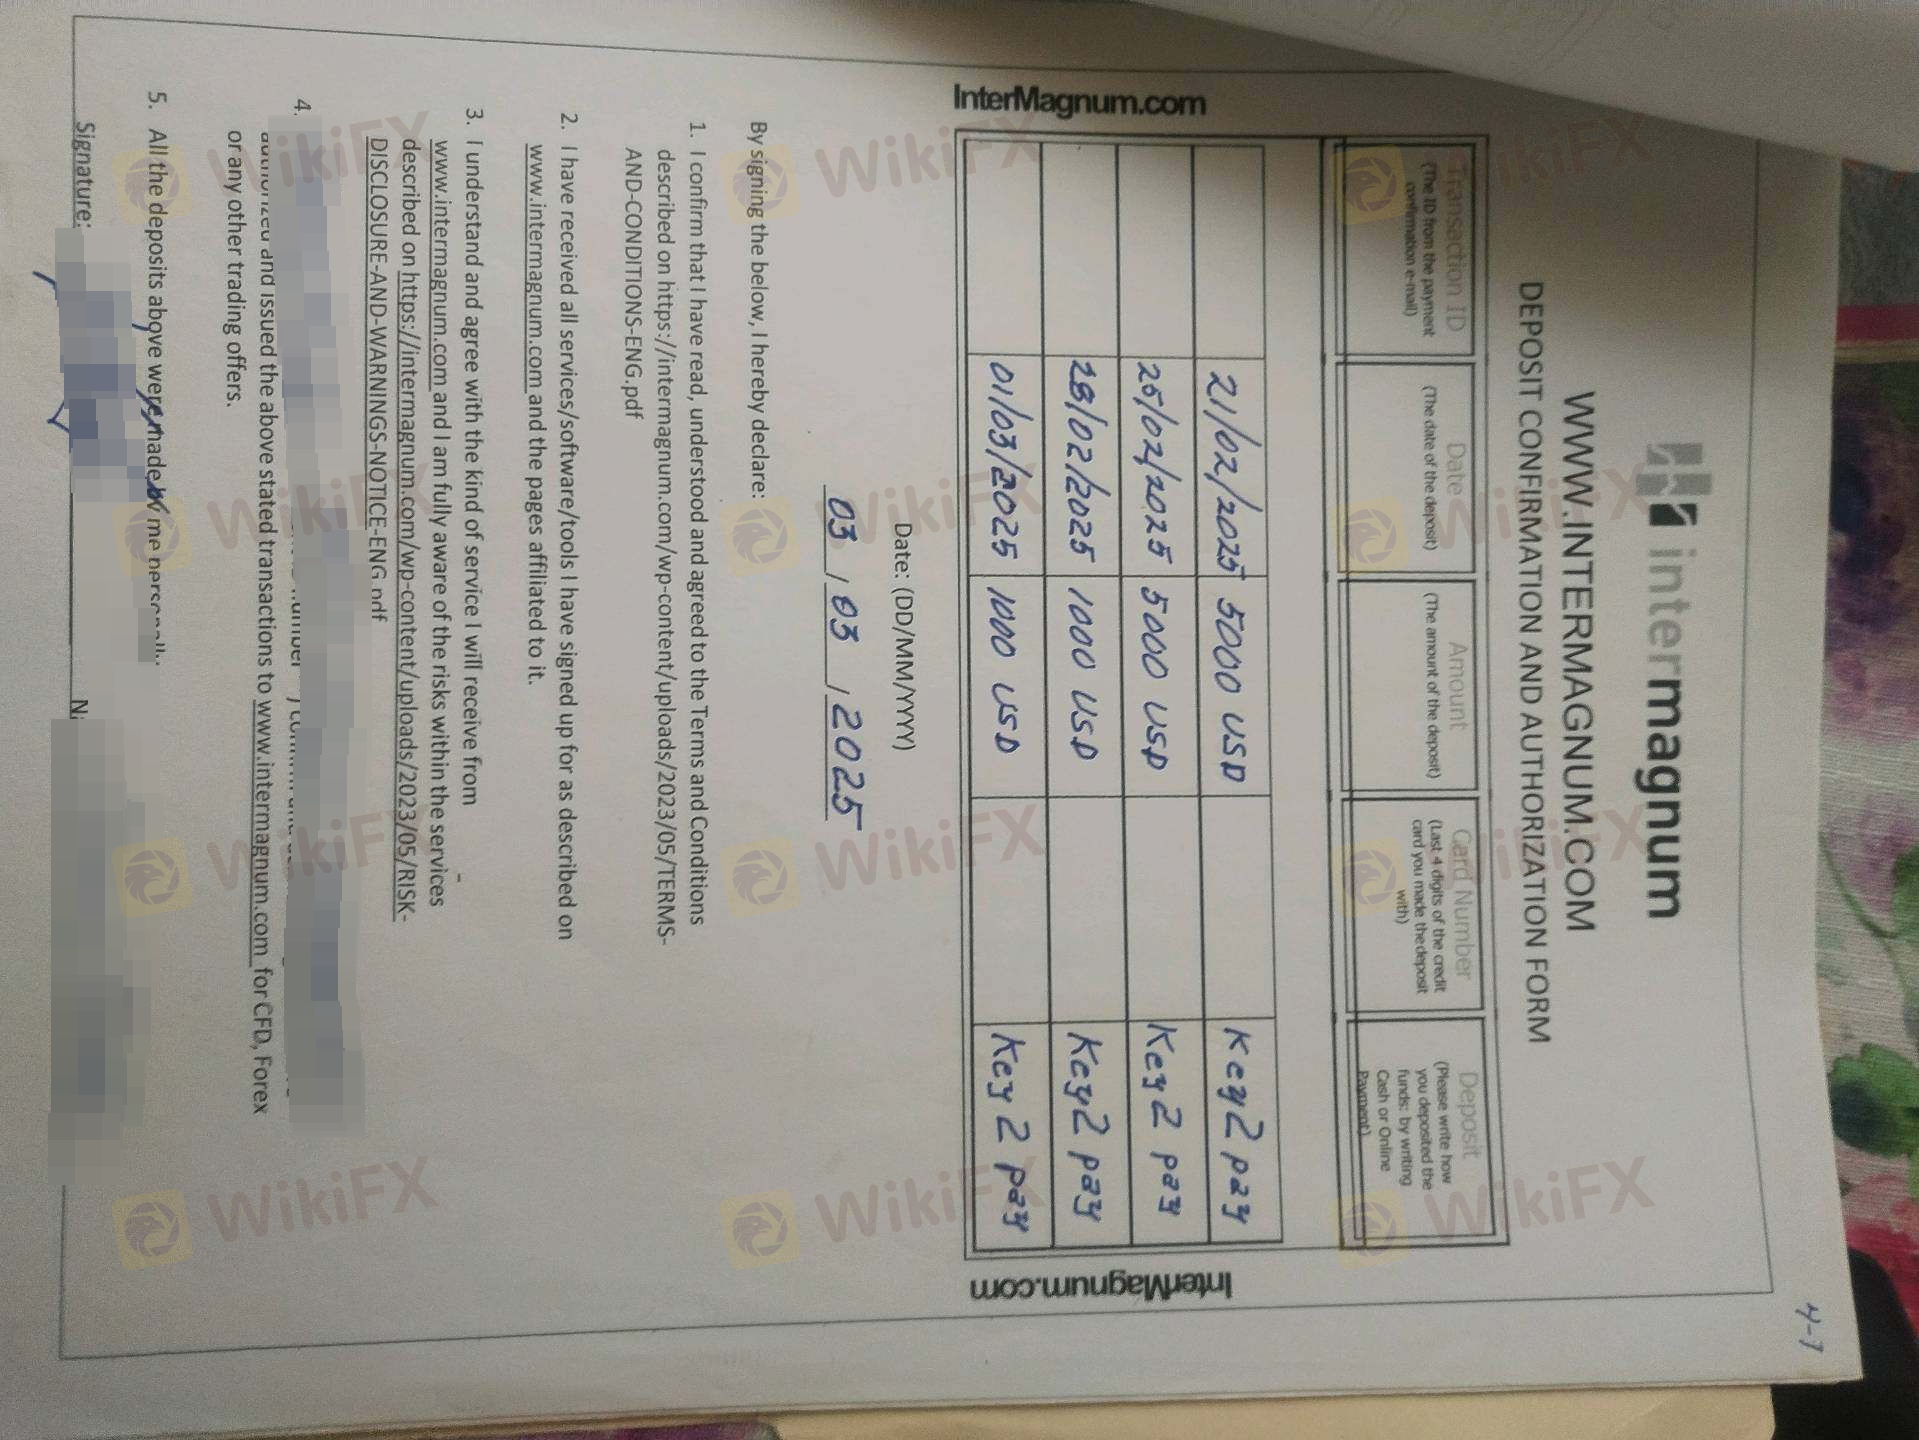 4-7
intermagnum
WWW.INTERMAGNUM.COM
DEPOSIT CONFIRMATION AND AUTHORIZATION FORM
Transaction ID
(The ID from the payment
confirmation e-mail)
Date
(The date of the deposit)
Amount
(The amount of the deposit)
Card Number
(Last 4 digits of the credit
card you made the deposit
with)
Deposit
(Please write how
you deposited the
funds: by writing
Cash or Online
Payment)
21/02/2025 5000 USD Key2pay
25/02/2025 5000 USD Key2pay
28/02/2025 1000 USD Key2pay
01/03/2025 1000 USD Key2pay
InterMagnum.com
InterMagnum.com
Date: (DD/MM/YYYY)
03 / 03 / 2025
By signing the below, I hereby declare:
1. I confirm that I have read, understood and agreed to the Terms and Conditions
described on https://intermagnum.com/wp-content/uploads/2023/05/TERMS-
AND-CONDITIONS-ENG.pdf
2. I have received all services/software/tools I have signed up for as described on
www.intermagnum.com and the pages affiliated to it.
3. I understand and agree with the kind of service I will receive from
www.intermagnum.com and I am fully aware of the risks within the services
described on https://intermagnum.com/wp-content/uploads/2023/05/RISK-
DISCLOSURE-AND-WARNINGS-NOTICE-ENG.pdf
4.
authorized and issued the above stated transactions to www.intermagnum.com for CFD, Forex
or any other trading offers.
5. All the deposits above were made by me personally.
Signature:
WikiFX
WikiFX
WikiFX
WikiFX
WikiFX
WikiFX
WikiFX
WikiFX
WikiFX
WikiFX
WikiFX
WikiFX